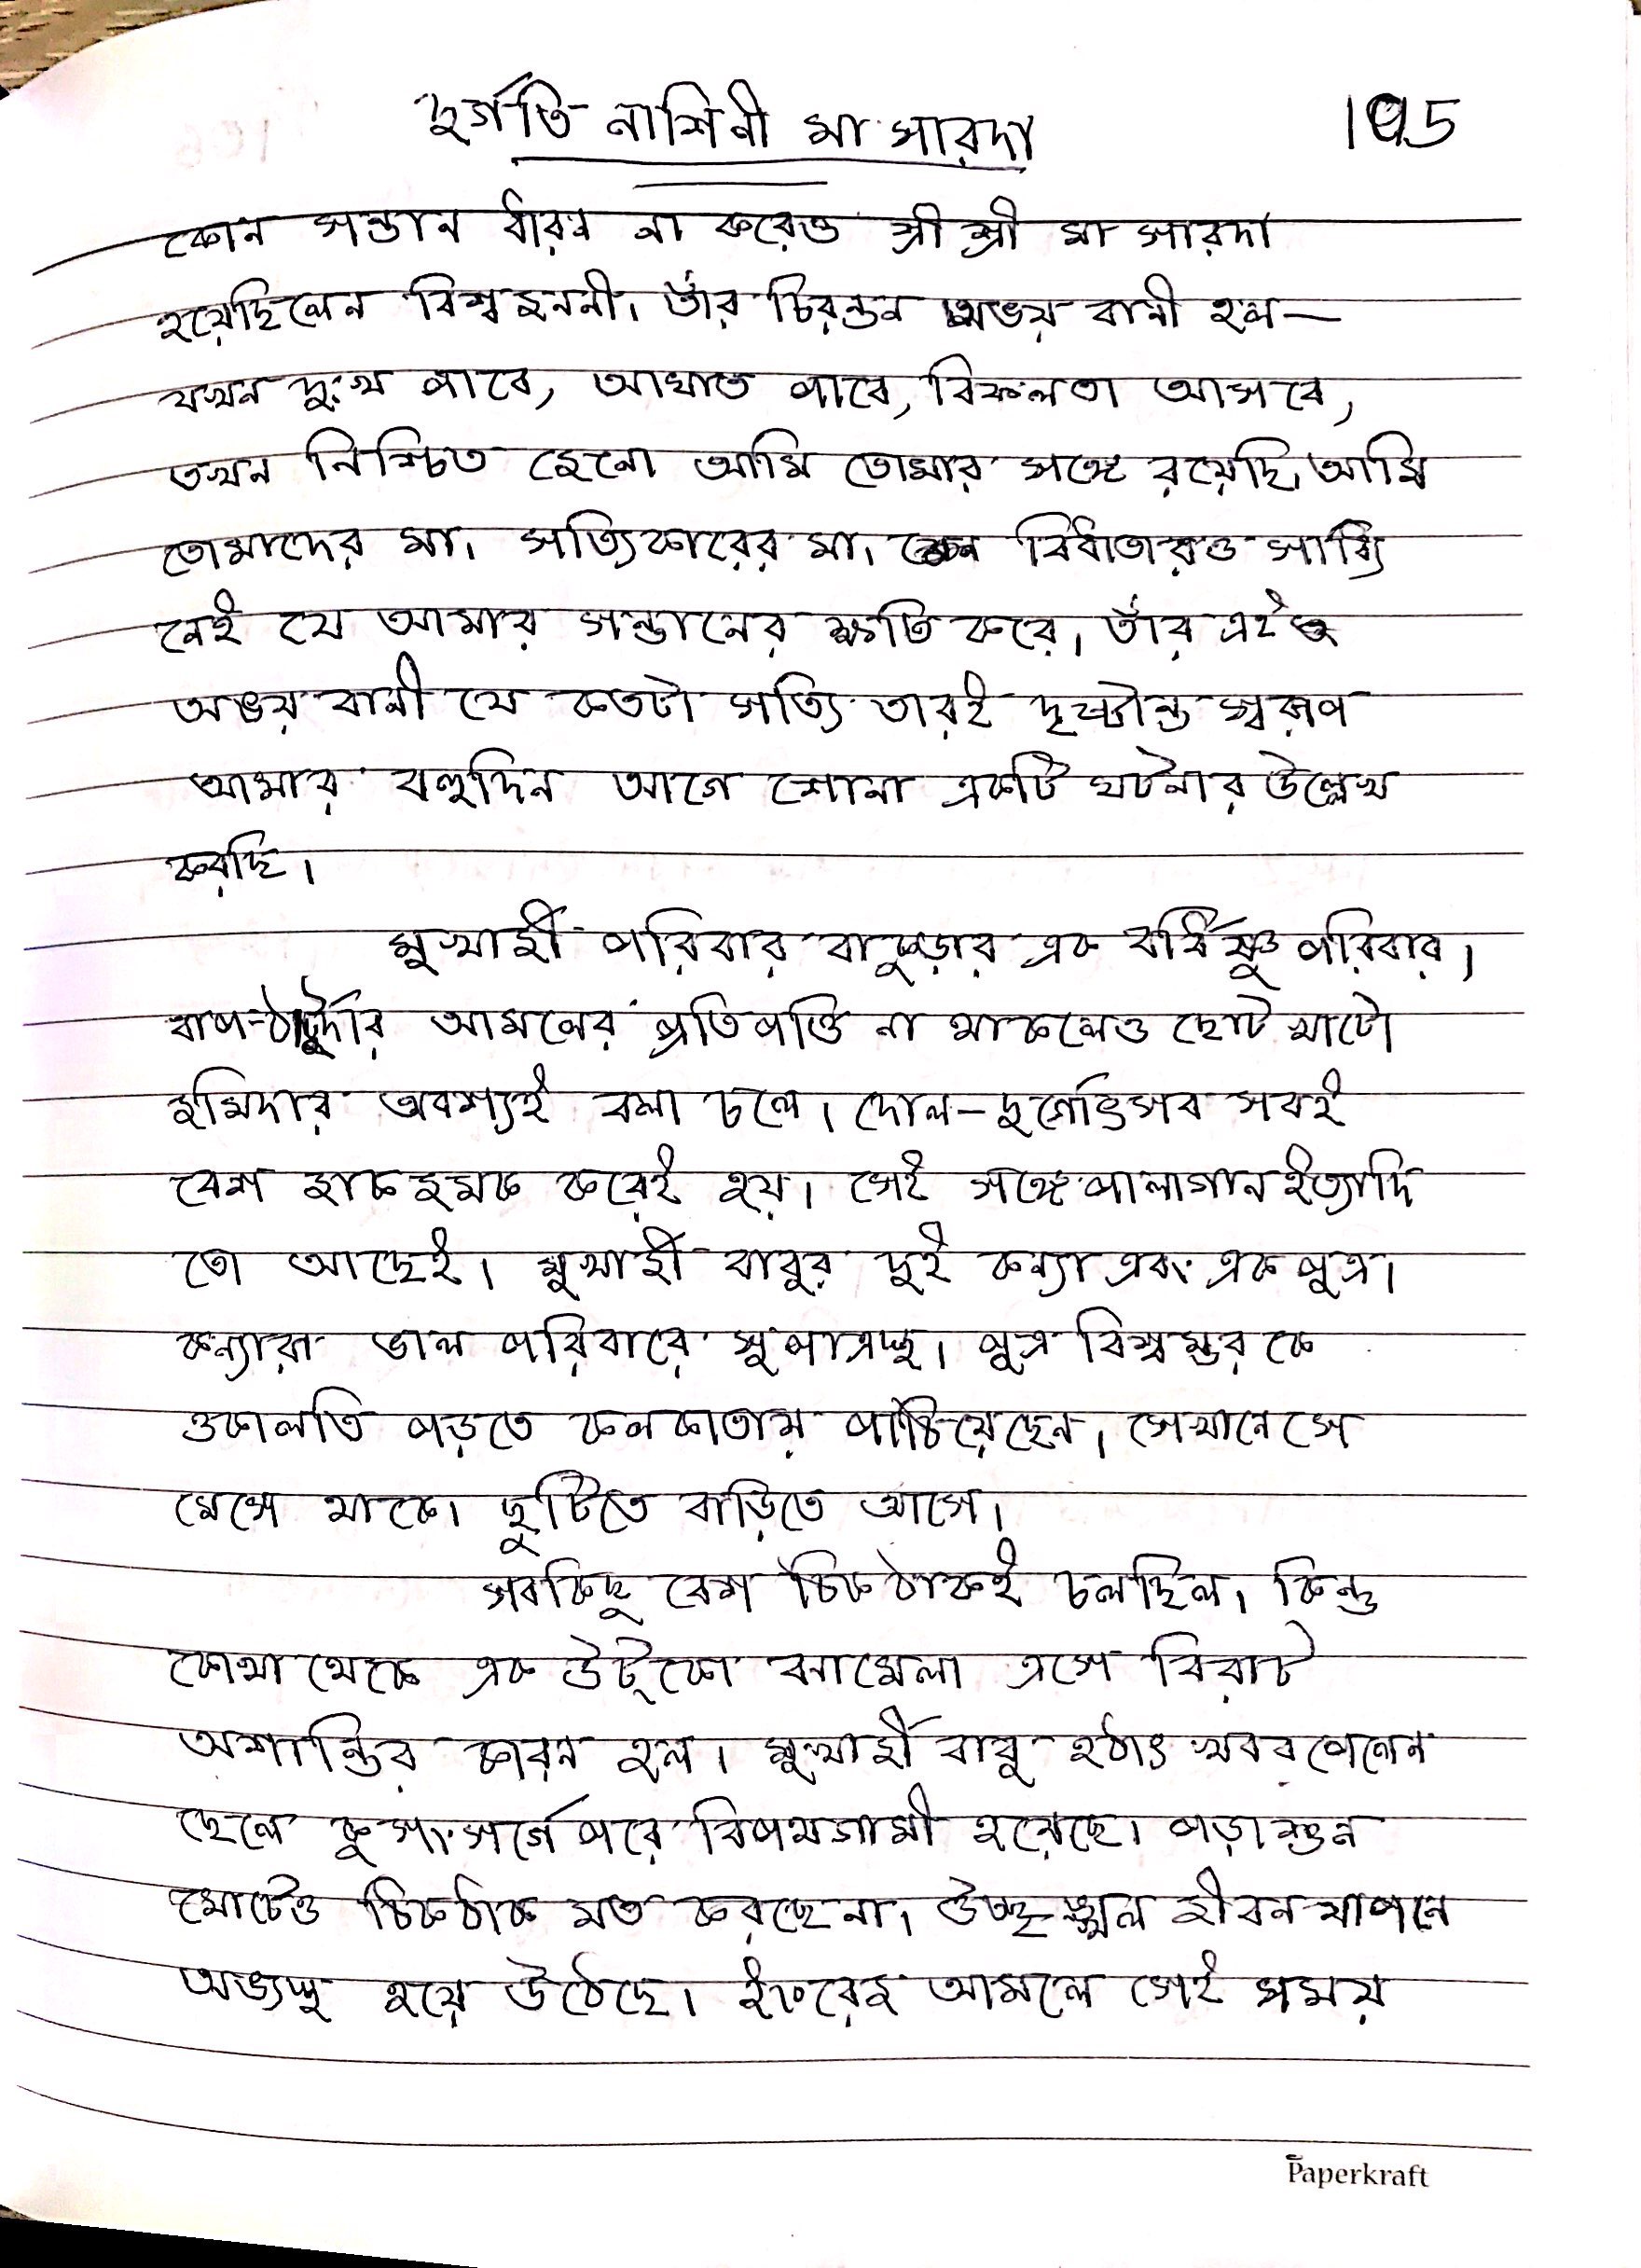 দুর্গতি নাশিনী মা সারদা
105
কোন সন্তান ধারন না করেও শ্রী শ্রী মা সারদা
হয়েছিলেন বিশ্বজননী। তাঁর চিরন্তন অভয় বানী হল—
যখন দুঃখ পাবে, আঘাত পাবে, বিফলতা আসবে,
তখন নিশ্চিত জেনো আমি তোমার সঙ্গে রয়েছি। আমি
তোমাদের মা। সত্যিকারের মা। কোন বিধাতারও সাধ্যি
নেই যে আমার সন্তানের ক্ষতি করে। তাঁর এই
অভয় বানী যে কতটা সত্যি তারই দৃষ্টান্ত স্বরূপ
আমার বহুদিন আগে শোনা একটি ঘটনার উল্লেখ
করছি।
মুখার্জী পরিবার বাকুড়ার এক বর্ধিষ্ণু পরিবার।
বাপ-ঠাকুর্দার আমলের প্রতিপত্তি না থাকলেও ছোট খাটো
জমিদার অবশ্যই বলা চলে। দোল-দুর্গোৎসব সবই
বেশ জাকজমক করেই হয়। সেই সঙ্গে পালাগান ইত্যাদি
তো আছেই। মুখার্জী বাবুর দুই কন্যা এবং এক পুত্র।
কন্যারা ভাল পরিবারে সুপাত্রস্থ। পুত্র বিশ্বম্ভর কে
ওকালতি পড়তে কলকাতায় পাঠিয়েছেন। সেখানে সে
মেসে থাকে। ছুটিতে বাড়িতে আসে।
সবকিছু বেশ ঠিকঠাকই চলছিল। কিন্তু
কোথা থেকে এক উট্কো ঝামেলা এসে বিরাট
অশান্তির কারন হল। মুখার্জী বাবু হঠাৎ খবর পেলেন
ছেলে কুসংসর্গে পরে বিপথগামী হয়েছে। পড়াশুন
মোটেও ঠিকঠাক মত করছে না। উচ্ছৃঙ্খল জীবন যাপনে
অভ্যস্থ হয়ে উঠেছে। ইংরেজ আমলে সেই সময়
Paperkraft